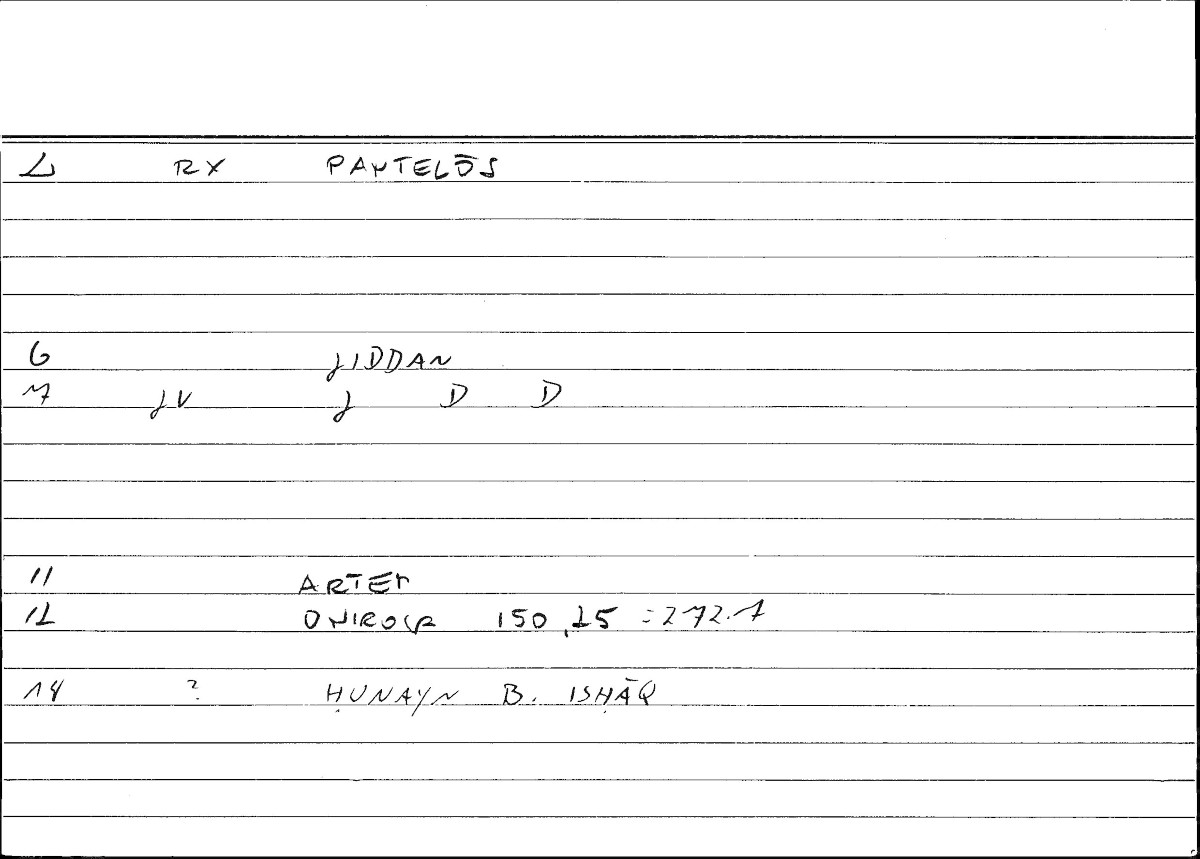 1 RX PANTELŌS
6 JIDDAN
7 JV J D D
11 ARTEM
12 ONIROCR 150,15 = 272.7
14 ? ḤUNAYN B. ISḤĀQ